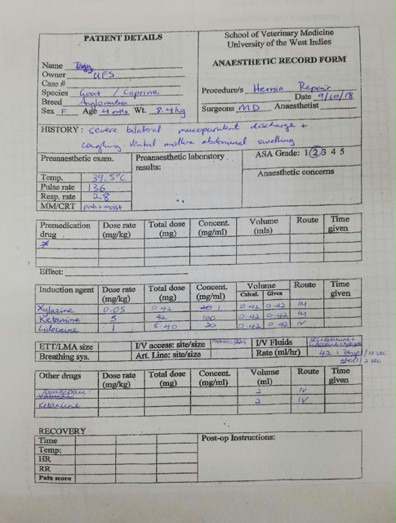 PATIENT DETAILS
School of Veterinary Medicine
University of the West Indies
ANAESTHETIC RECORD FORM
Name
Owner UFS
Case #
Species Goat / Caprine
Breed
Sex F Age 4 mths Wt. 8.4kg
Procedure/s Hernia Repair
Date 9/10/18
Surgeons MD Anaesthetist
HISTORY: severe bilateral mucopurulent discharge +
coughing abdominal swelling
Preanaesthetic exam.
Preanaesthetic laboratory results:
ASA Grade: 1 2 3 4 5
Anaesthetic concerns
Temp. 39.5°C
Pulse rate 136
Resp. rate 28
MM/CRT pink + moist
Premedication drug Dose rate (mg/kg) Total dose (mg) Concent. (mg/ml) Volume (mls) Route Time given
Effect:
Induction agent Dose rate (mg/kg) Total dose (mg) Concent. (mg/ml) Volume Calcul. Given Route Time given
Xylazine 0.05 0.42 0.42 0.42 IM
Ketamine 5 42 100 0.42 0.42 IM
Lidocaine 1 8.40 20 0.42 0.42 IV
ETT/LMA size I/V access: site/size I/V Fluids
Breathing sys. Art. Line: site/size Rate (ml/hr) 42
Other drugs Dose rate (mg/kg) Total dose (mg) Concent. (mg/ml) Volume (ml) Route Time given
2 IV
Ketamine 2 IV
RECOVERY
Time
Temp:
HR
RR
Pain score
Post-op Instructions: